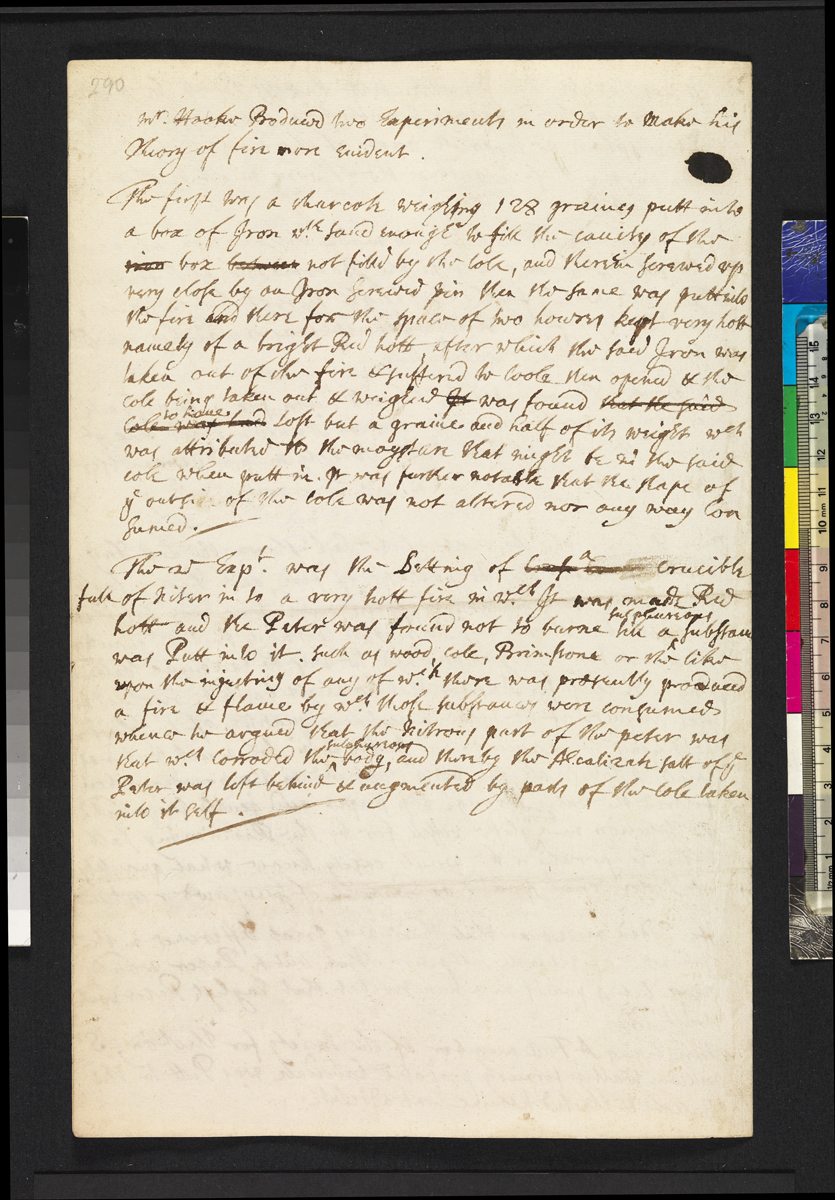 290
mr. Hooke Produced two Experiments in order to Make his
Theory of fire more Euident.
The first was a charcole weighing 128 graines putt into
a box of Iron wth sand enough to fill the cauity of the
iron box between not filld by the Cole, and therein screwed up
very close by an Iron Screwed pin then the same was putt into
the fire and there for the space of two howres kept very hott
namely of a bright Red hott, after which the said Iron was
taken out of the fire & suffered to Coole then opened & the
cole being taken out & weighed It was found that the said
Cole was had to haue Lost but a graine and half of its weight wch
was attributed to the moysture that might be in the said
cole when putt in. It was further notable that the shape of
ye outside of the Cole was not altered nor any way Con
sumed.
The 2d Expt. was the Setting of a Crucible
full of Niter in to a very hott fire in wch It was made Red
hott and the Peter was found not to burne till a sulphureous substance
was Putt into it. such as wood, cole, Brimstone or the like
upon the iniecting of any of wch there was presently produced
a fire & flame by wch those substances were consumed
whence he argued that the Nitrous part of the peter was
that wch corroded the sulphurious body, and thereby the Alcalizate salt of ye
Peter was left behind & augmented by parts of the Cole taken
into it self.